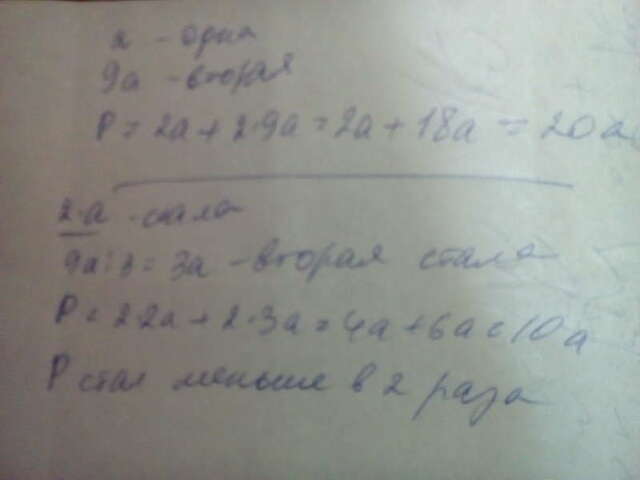 а - одна
9а - вторая
P = 2а + 2·9а = 2а + 18а = 20а
2·а - стала
9а:3 = 3а - вторая стала
P = 2·2а + 2·3а = 4а + 6а = 10а
P стал меньше в 2 раза